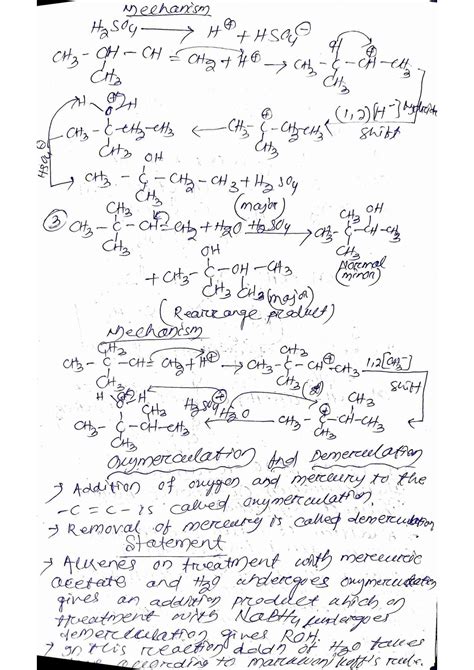 Mechanism
H₂SO₄ → H⊕ + HSO₄⊖
CH₃ – CH – CH = CH₂ + H⊕ → CH₃ – C – CH – CH₃
CH₃ CH₃
(1,2) [H⁻] Hydride
shift
H – O – H
CH₃ – C – CH₂ – CH₃ ← CH₃ – C – CH₂ – CH₃
HSO₄⊖ CH₃ CH₃
OH
→ CH₃ – C – CH₂ – CH₃ + H₂SO₄
CH₃ (major)
③ CH₃ – C – CH = CH₂ + H₂O H₂SO₄ → CH₃ – C – CH – CH₃
CH₃ CH₃ CH₃ OH CH₃
Normal
(minor)
OH
+ CH₃ – C – CH – CH₃
CH₃ CH₃ (major)
(Rearrange product)
Mechanism
CH₃ CH₃
CH₃ – C – CH = CH₂ + H⊕ → CH₃ – C – CH⊕ – CH₃ 1,2 [CH₃⁻]
CH₃ CH₃ shift
H O H CH₃ H₂SO₄ H₂O
CH₃ – C – CH – CH₃ CH₃ – C – CH – CH₃
CH₃ CH₃
Oxymerculation And Demerculation
→ Addition of oxygen and mercury to the
-C = C - is called oxymerculation.
→ Removal of mercury is called demerculation
Statement
→ Alkenes on treatment with mercuric
acetate and H₂O undergoes oxymerculation
gives an addition product which on
treatment with NaBH₄ undergoes
demerculation gives ROH.
→ In this reaction addn of H₂O takes
according to